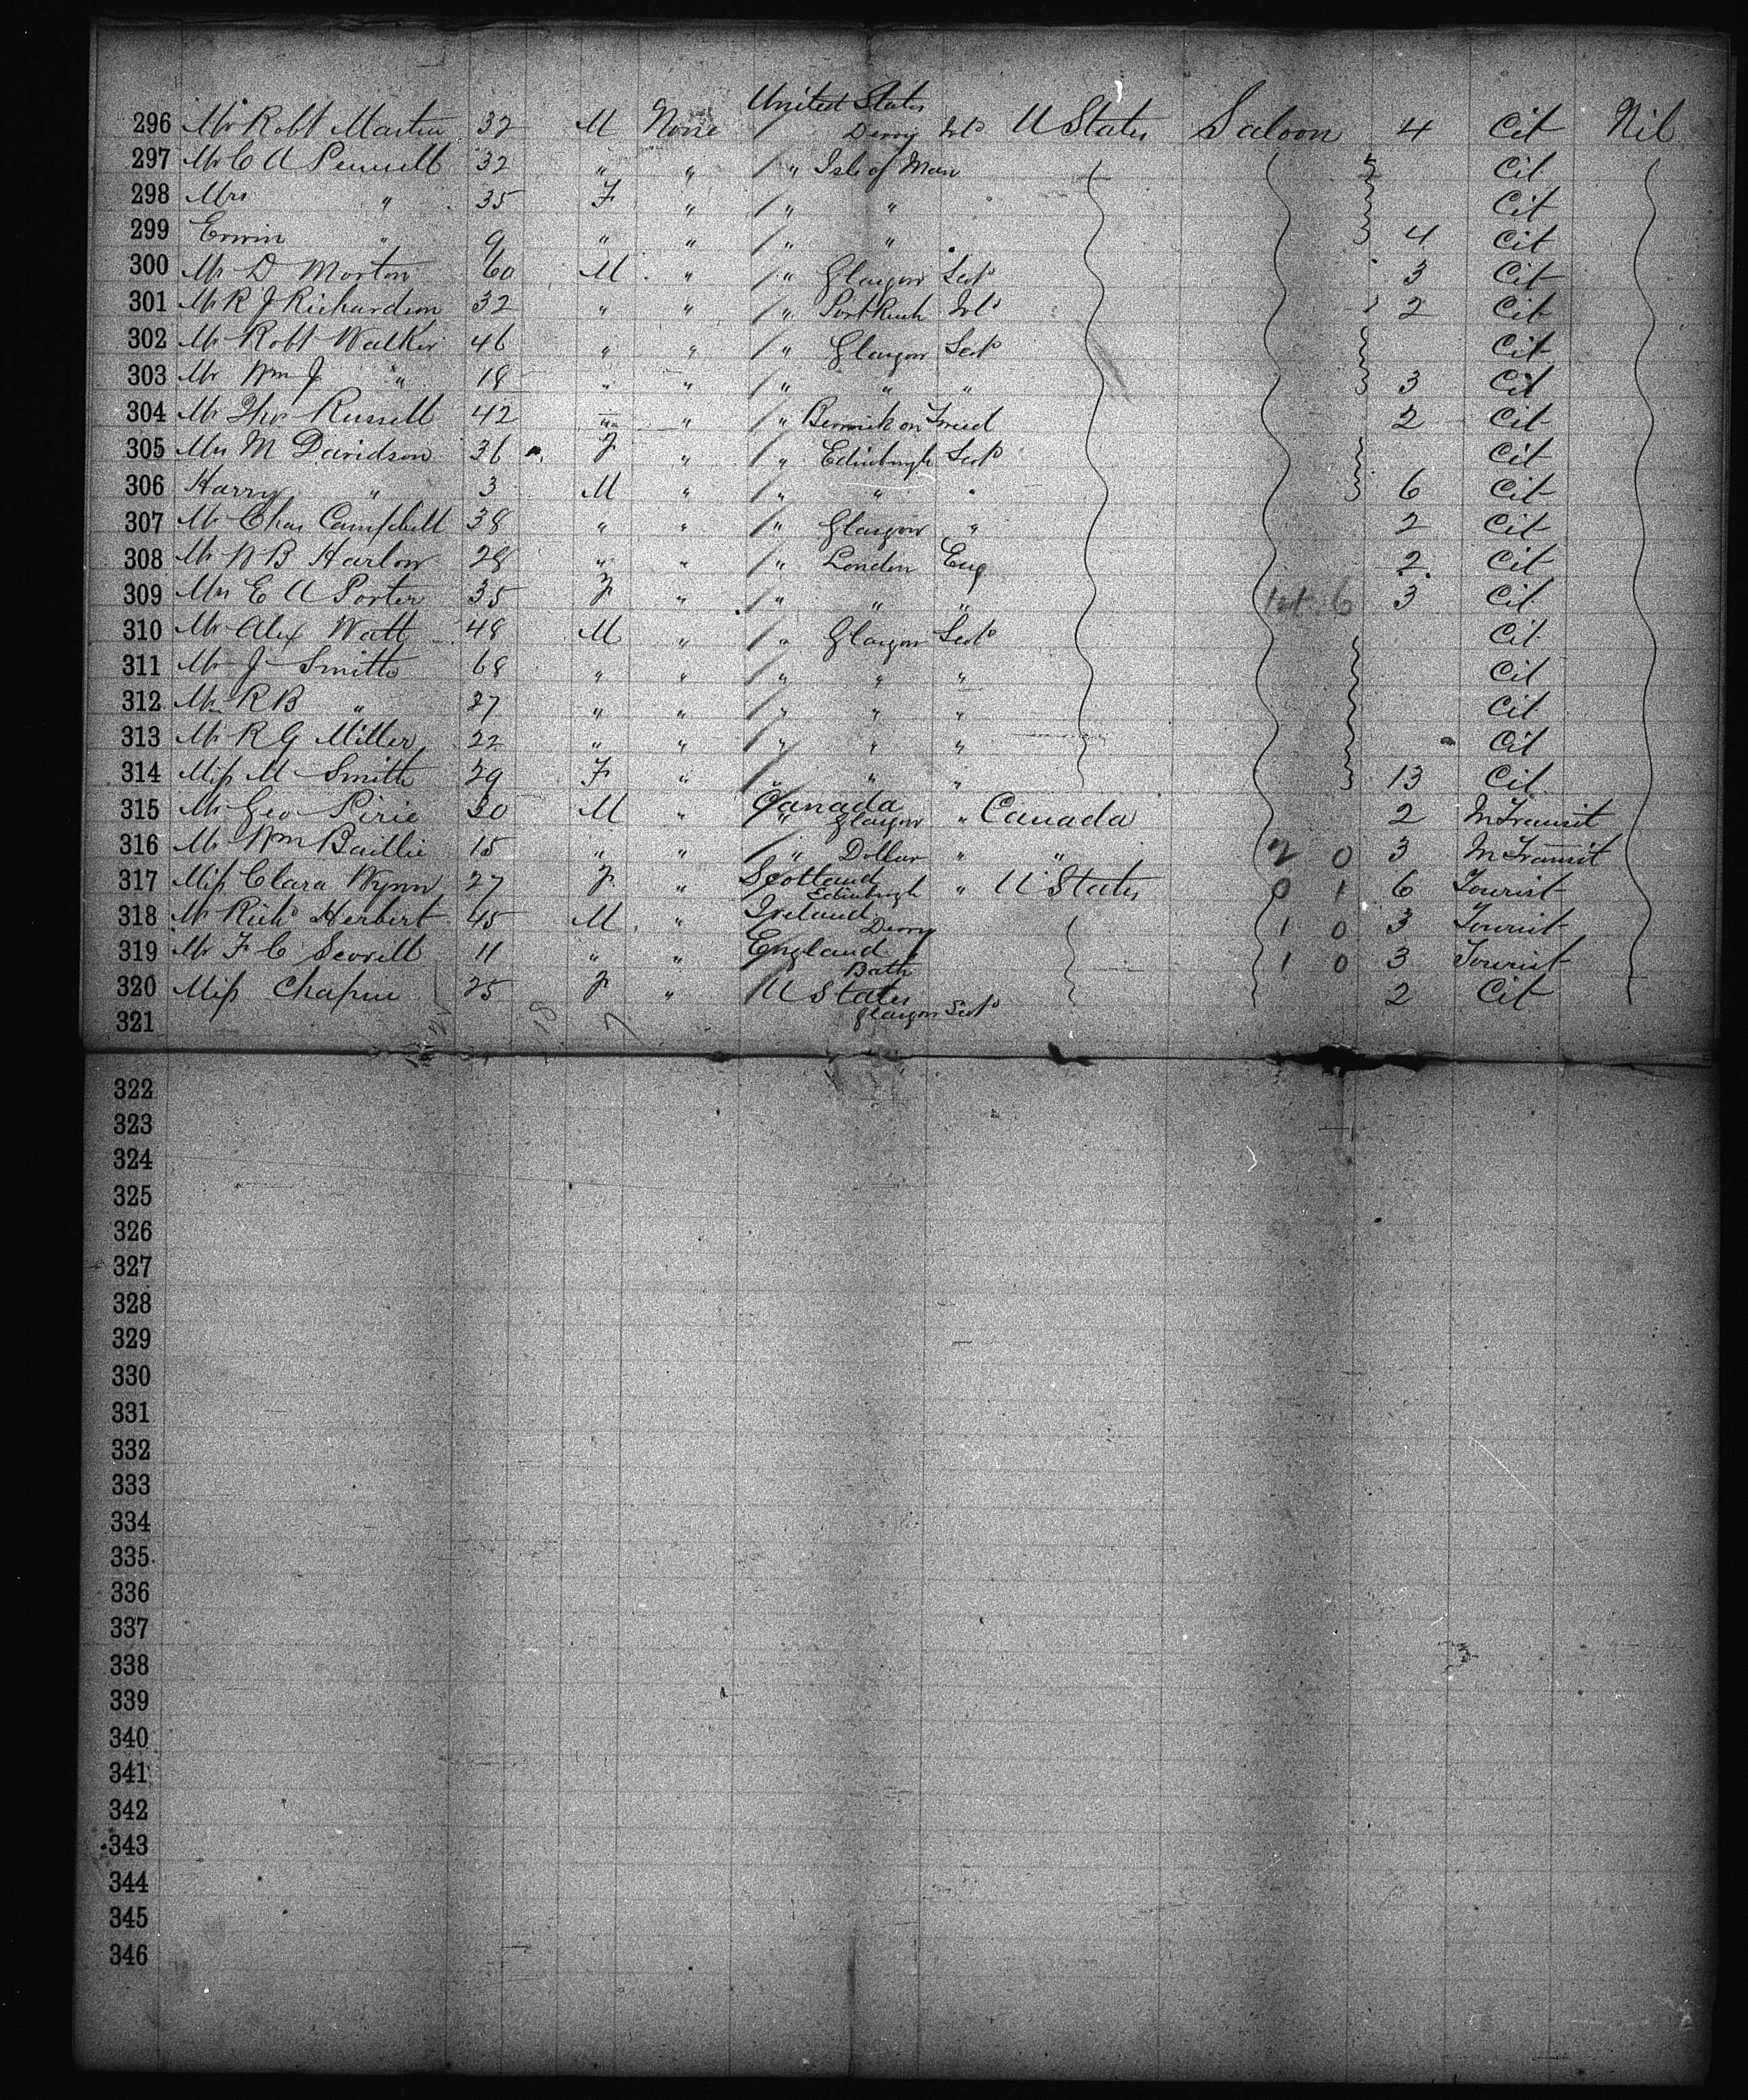 United States
296 Mr Robt Martin 32 M None / Derry Irld U States Saloon 4 Cit Nil
297 Mr C A 32 " " / " Isle of Man Cit
298 Mrs " 35 F " / " " Cit
299 Erwin " 9 " " / " " 4 Cit
300 Mr D Morton 60 M " / " Glasgow Scotd 3 Cit
301 Mr R J Richardson 32 " " / " Port Rush Irld 2 Cit
302 Mr Robt Walker 46 " " / " Glasgow Scotd Cit
303 Mr Wm J " 18 " " / " " " 3 Cit
304 Mr Thos Russell 42 " " / " Berwick on Tweed 2 Cit
305 Mrs M Davidson 36 F " / " Edinburgh Scotd Cit
306 Harry " 3 M " / " " " 6 Cit
307 Mr Chas Campbell 38 " " / " Glasgow " 2 Cit
308 Mr W B Harlow 28 " " / " London Eng 2 Cit
309 Mrs E A Porter 35 F " / " " " 6 3 Cit
310 Mr Alex Watt 48 M " / " Glasgow Scotd Cit
311 Mr J Smith 68 " " / " " " Cit
312 Mr R B " 27 " " / " " " Cit
313 Mr R G Miller 22 " " / " " " Cit
314 Miss M Smith 29 F " / " " " 13 Cit
315 Mr Geo Pirie 30 M " Canada " Glasgow " Canada 2 In Transit
316 Mr Wm Baillie 15 " " / " Dollar " " 2 0 3 In Transit
317 Miss Clara Wynn 27 F " Scotland Edinburgh " U States 0 1 6 Tourist
318 Mr Richd Herbert 45 M " Ireland Derry 1 0 3 Tourist
319 Mr F C 11 " " England Bath 1 0 3 Tourist
320 Miss Chapin 25 F " / U States Glasgow Scotd 2 Cit
321
322
323
324
325
326
327
328
329
330
331
332
333
334
335
336
337
338
339
340
341
342
343
344
345
346